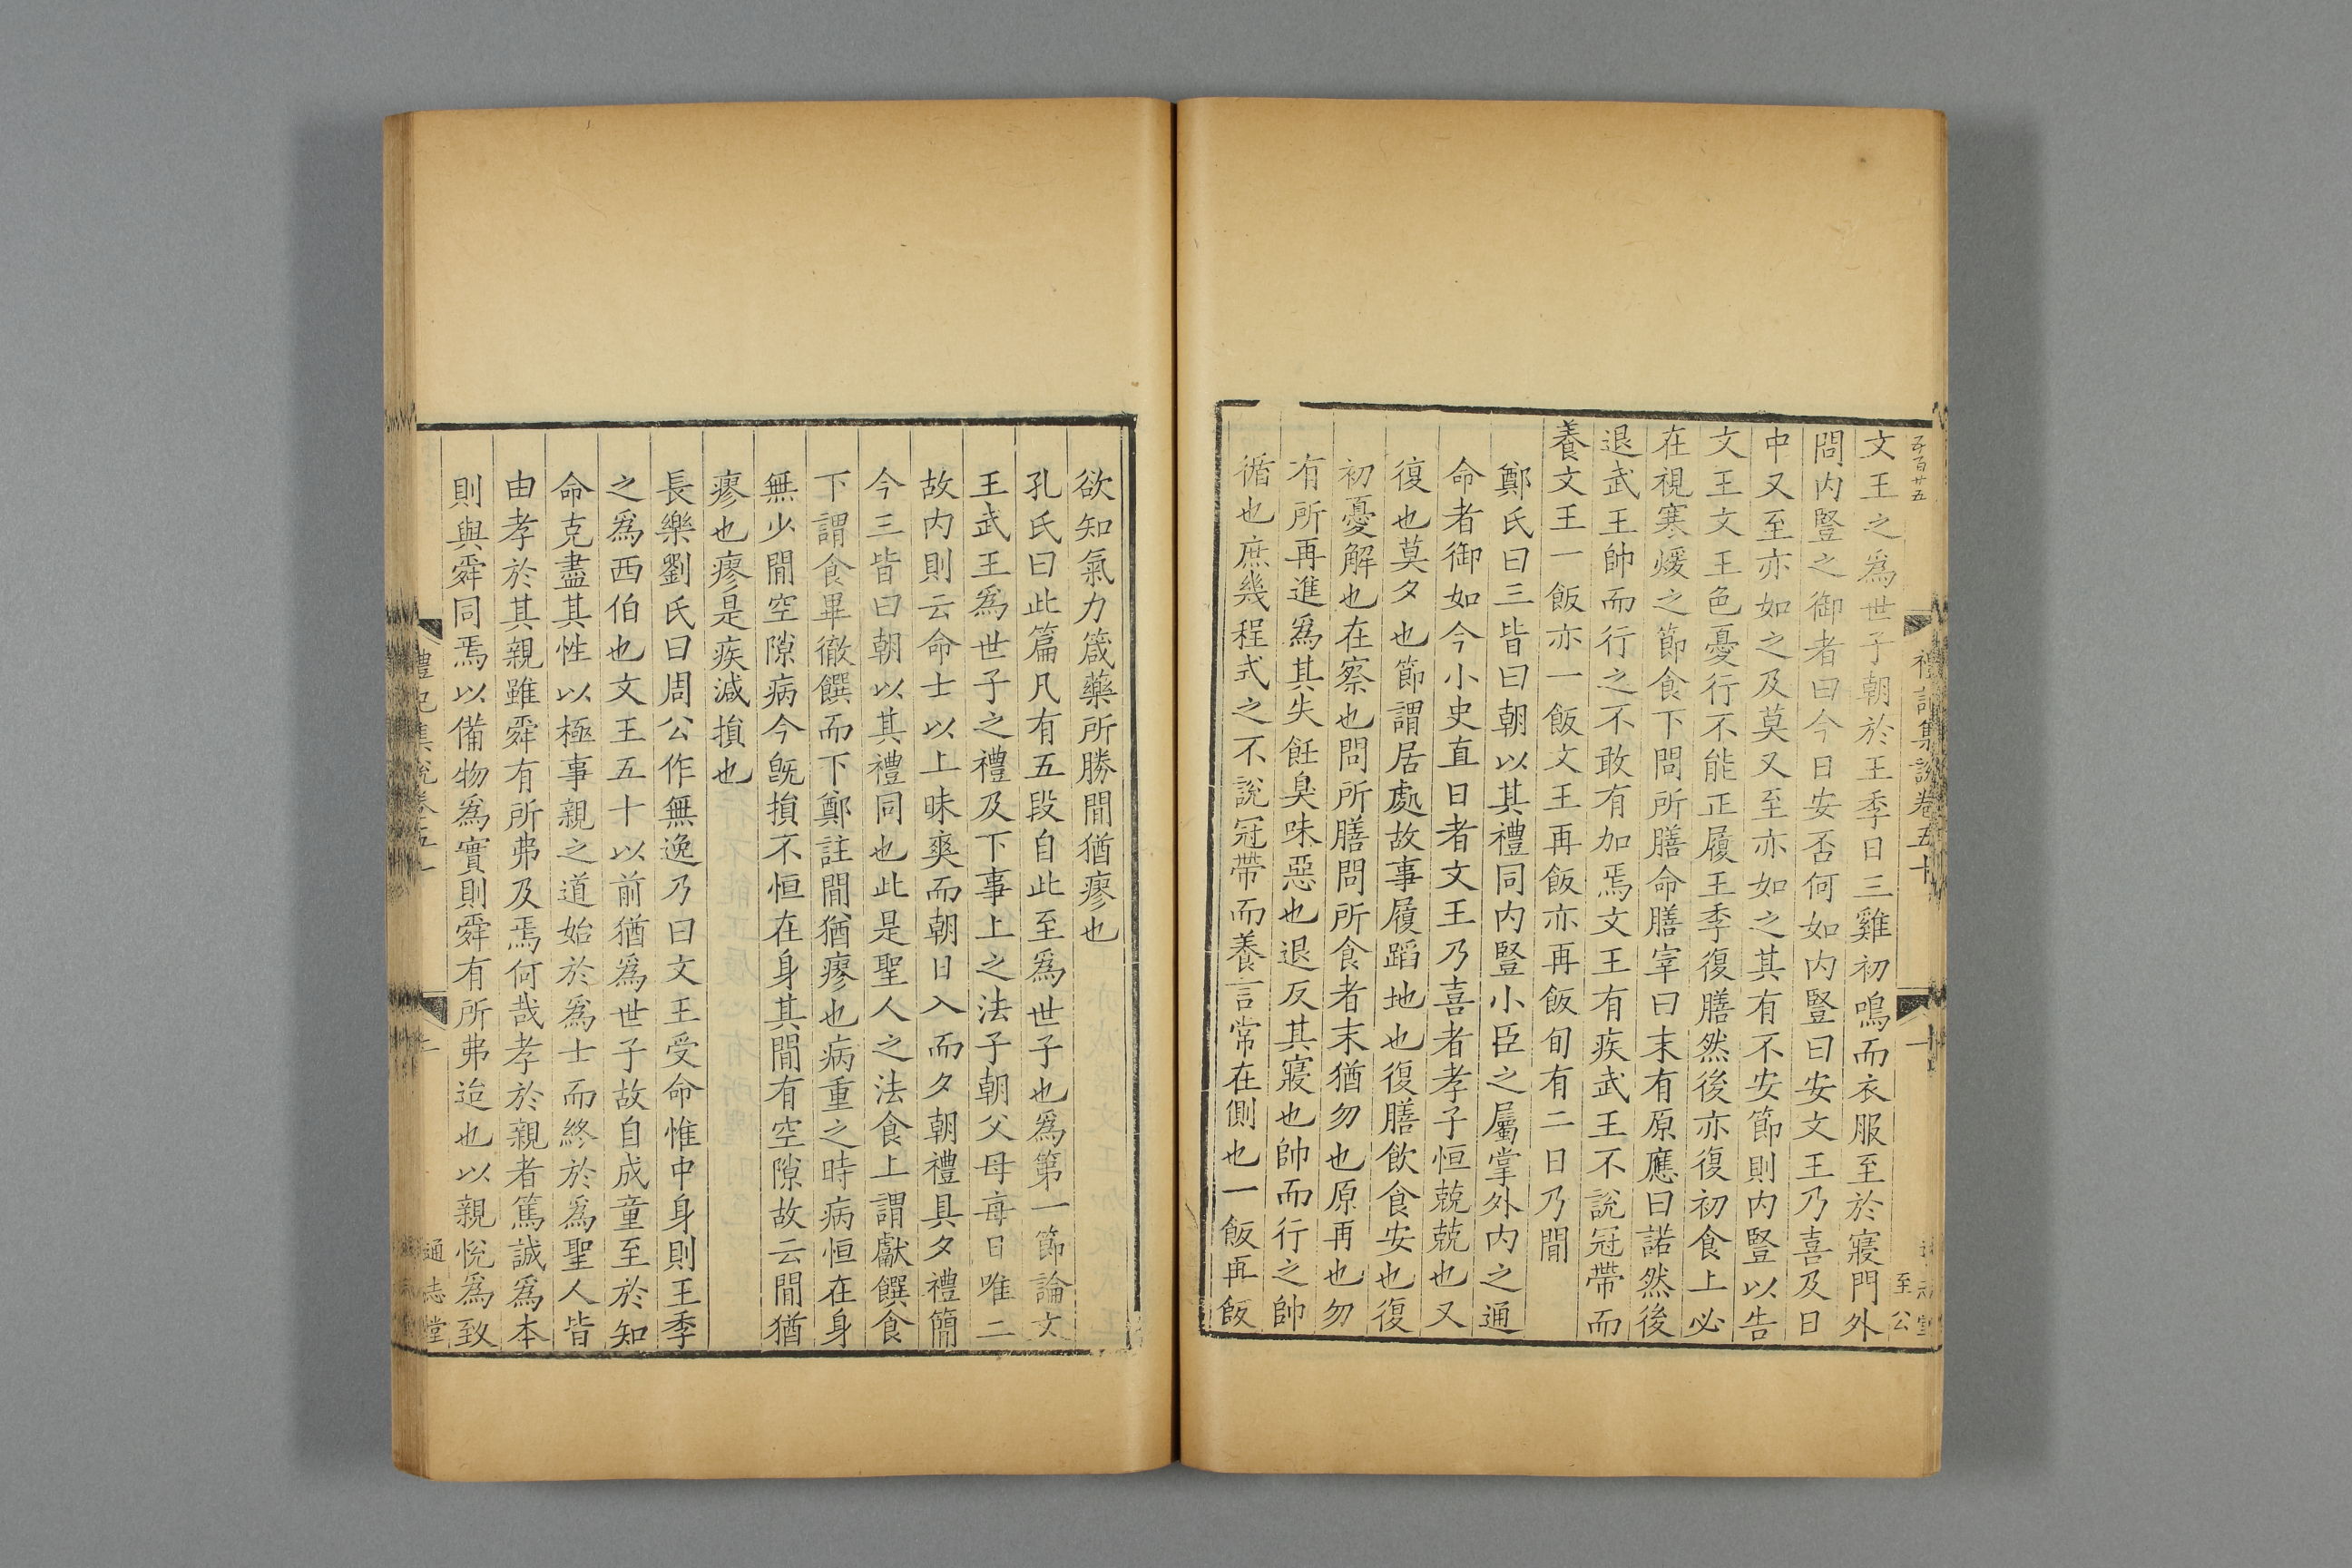 五百廿五
禮記集說卷五十
至公
文王之爲世子朝於王季日三雞初鳴而衣服至於寢門外
問内豎之御者曰今日安否何如内豎曰安文王乃喜及日
中又至亦如之及莫又至亦如之其有不安節則内豎以告
文王文王色憂行不能正履王季復膳然後亦復初食上必
在視寒煖之節食下問所膳命膳宰曰末有原應曰諾然後
退武王帥而行之不敢有加焉文王有疾武王不說冠帶而
養文王一飯亦一飯文王再飯亦再飯旬有二日乃閒
鄭氏曰三皆曰朝以其禮同内豎小臣之屬掌外内之通
命者御如今小史直日者文王乃喜者孝子恒兢兢也又
復也莫夕也節謂居處故事履蹈地也復膳飲食安也復
初憂解也在察也問所膳問所食者末猶勿也原再也勿
有所再進爲其失飪臭味惡也退反其寢也帥而行之帥
循也庶幾程式之不說冠帶而養言常在側也一飯再飯
欲知氣力箴藥所勝閒猶瘳也
孔氏曰此篇凡有五段自此至爲世子也爲第一節論文
王武王爲世子之禮及下事上之法子朝父母毎日唯二
故内則云命士以上昧爽而朝日入而夕朝禮具夕禮簡
今三皆曰朝以其禮同也此是聖人之法食上謂獻饌食
下謂食畢徹饌而下鄭註閒猶瘳也病重之時病恒在身
無少閒空隙病今旣損不恒在身其閒有空隙故云閒猶
瘳也瘳是疾減損也
長樂劉氏曰周公作無逸乃曰文王受命惟中身則王季
之爲西伯也文王五十以前猶爲世子故自成童至於知
命克盡其性以極事親之道始於爲士而終於爲聖人皆
由孝於其親雖舜有所弗及焉何哉孝於親者篤誠爲本
則與舜同焉以備物爲實則舜有所弗迨也以親悅爲致
禮記集說卷五十
二
通志堂